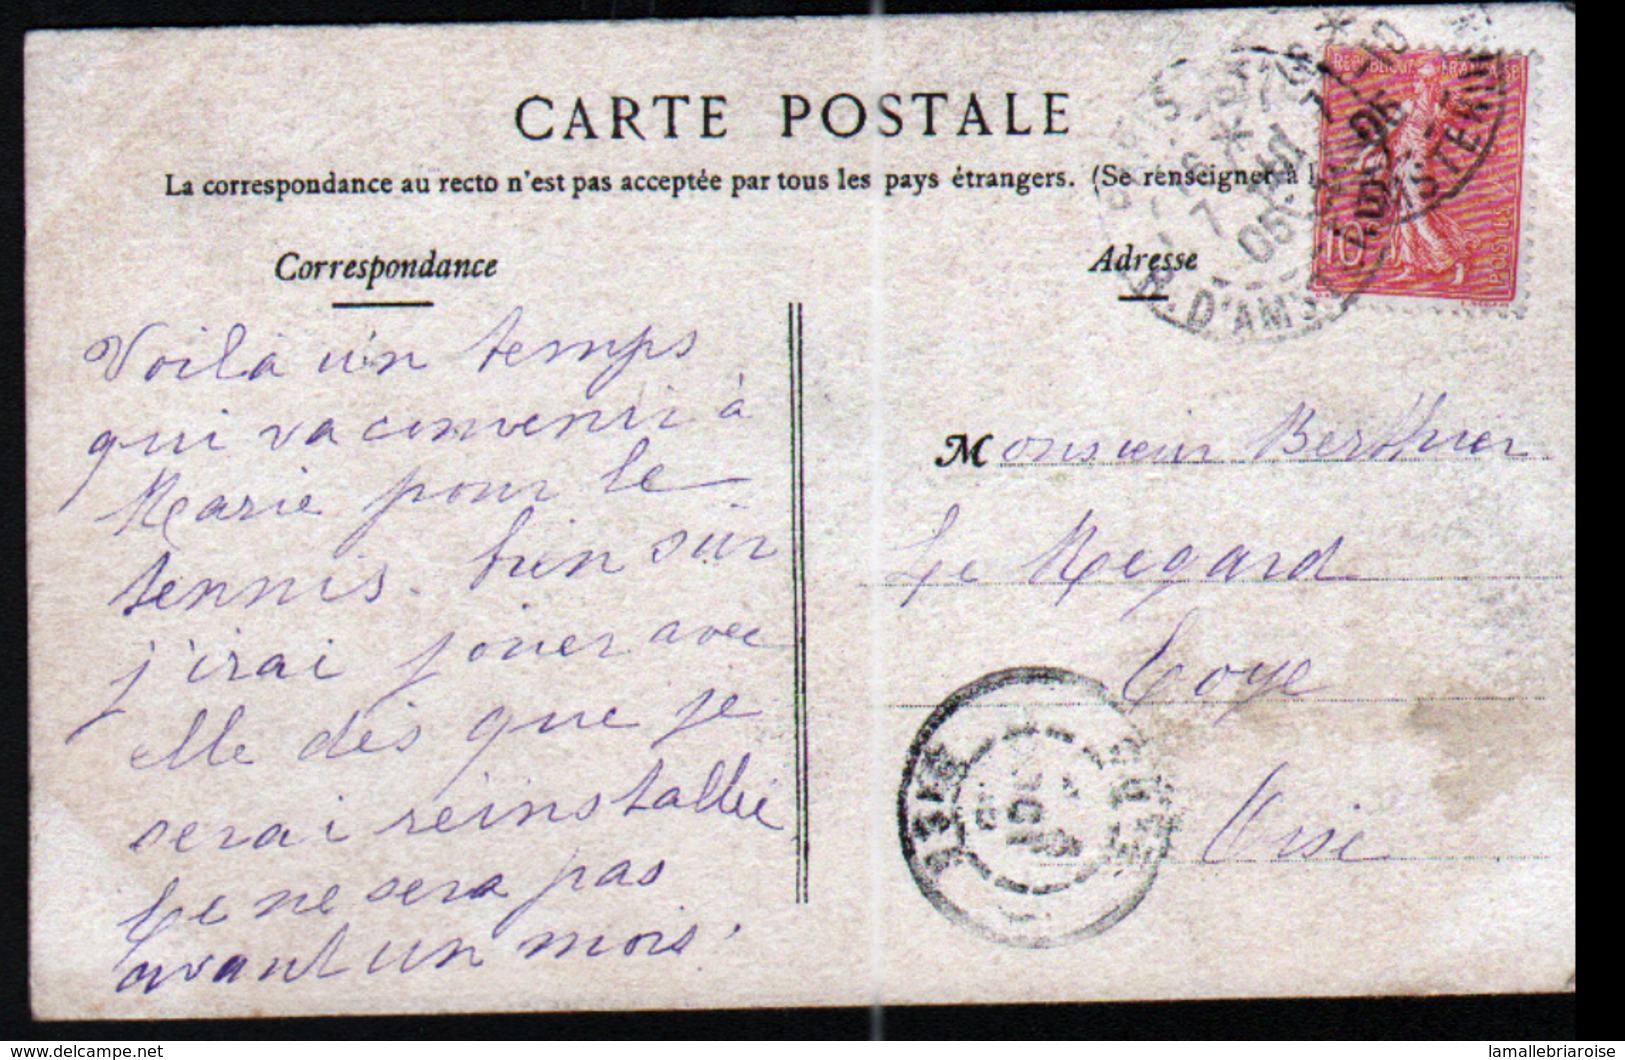 CARTE POSTALE
La correspondance au recto n'est pas acceptée par tous les pays étrangers. (Se renseigner à l
Correspondance
Voilà un temps
qui va convenir à
Marie pour le
tennis. bien sûr
j'irai jouer avec
elle dès que je
serai réinstallée
Ce ne sera pas
avant un mois.
Adresse
Monsieur Berthier
Le Regard
Coye
Oise
REPUBLIQUE FRANÇAISE
10
POSTES
PARIS
7
05
R. D'AMS
OISE
lamallebriaroise